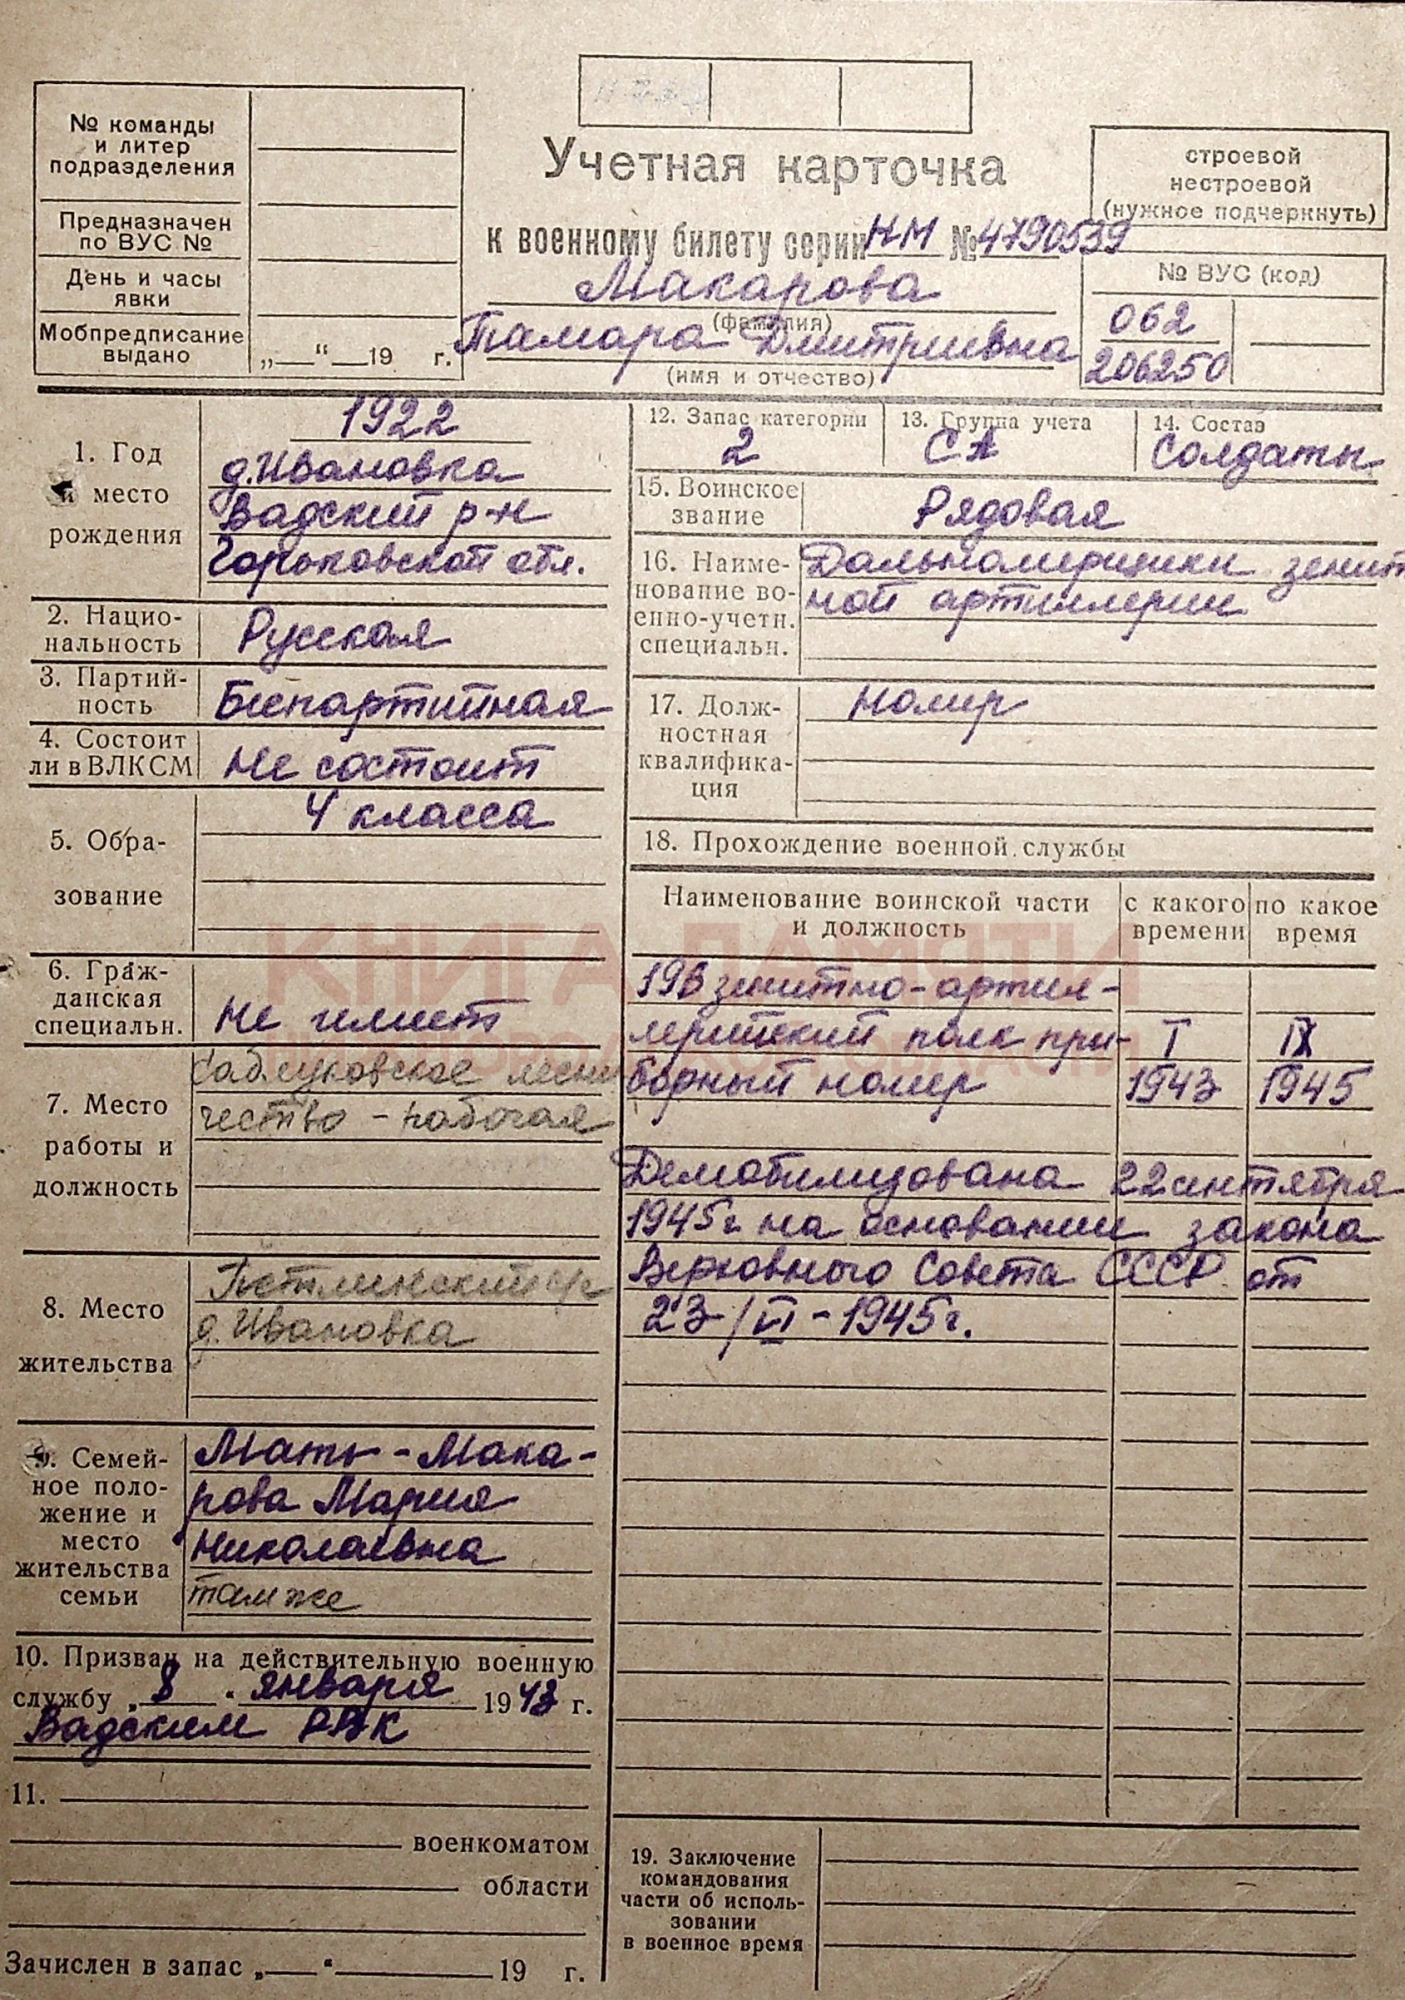 № команды
и литер
подразделения
Предназначен
по ВУС №
День и часы
явки
Мобпредписание
выдано
„ “ 19 г.
Учетная карточка
к военному билету серии НМ № 4790539
Макарова
(фамилия)
Тамара Дмитриевна
(имя и отчество)
строевой
нестроевой
(нужное подчеркнуть)
№ ВУС (код)
062
206250
1. Год
и место
рождения
1922
д. Ивановка
Вадский р-н
Горьковской обл.
2. Нацио-
нальность
Русская
3. Партий-
ность
Беспартийная
4. Состоит
ли в ВЛКСМ
Не состоит
5. Обра-
зование
4 класса
6. Граж-
данская
специальн.
Не имеет
7. Место
работы и
должность
лесни
чество - рабочая
8. Место
жительства
д. Ивановка
9. Семей-
ное поло-
жение и
место
жительства
семьи
Мать - Мака-
рова Мария
Николаевна
там же
10. Призван на действительную военную
службу „ 8 “ января 1943 г.
Вадским РВК
11.
военкоматом
области
Зачислен в запас „ “ 19 г.
12. Запас категории
2
13. Группа учета
СА
14. Состав
Солдаты
15. Воинское
звание
Рядовая
16. Наиме-
нование во-
енно-учетн.
специальн.
Дальномерщики зенит
ной артиллерии
17. Долж-
ностная
квалифика-
ция
Номер
18. Прохождение военной службы
Наименование воинской части
и должность
с какого
времени
по какое
время
196 зенитно-артил-
лерийский полк при-
борный номер
I
1943
IX
1945
Демобилизована 22 сентября
1945 г на основании закона
Верховного Совета СССР от
23/VI - 1945 г.
19. Заключение
командования
части об исполь-
зовании
в военное время
КНИГА ПАМЯТИ
НИЖЕГОРОДСКОЙ ОБЛАСТИ